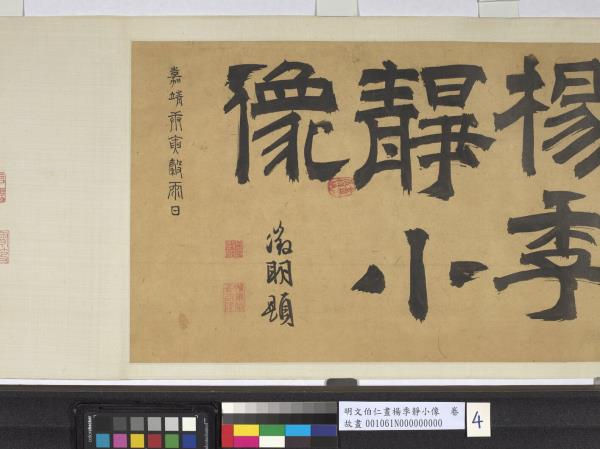 楊季
靜小
像
徵明題
嘉靖丙寅穀雨日
明文伯仁畫楊季靜小像　卷
故畫 001061N000000000
4